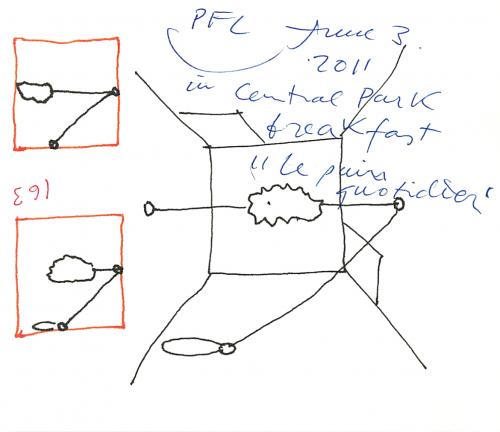 PFL June 3
2011
in Central Park
breakfast
"Le pain
quotidien"
163